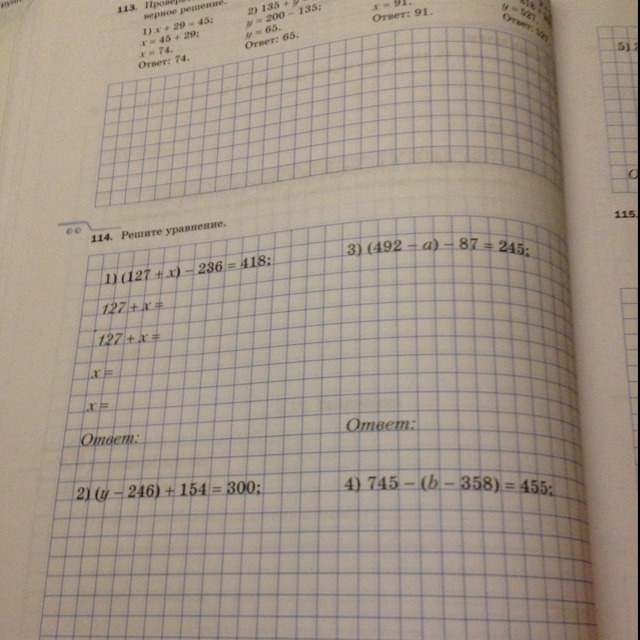 113. Провери
верное решение.
1) x + 29 = 45;
x = 45 + 29;
x = 74.
Ответ: 74.
2) 135 + y
y = 200 − 135;
y = 65.
Ответ: 65.
x = 91.
Ответ: 91.
y = 527.
Ответ:
51
114. Решите уравнение.
1) (127 + x) − 236 = 418;
127 + x =
127 + x =
x =
x =
Ответ:
2) (y − 246) + 154 = 300;
3) (492 − a) − 87 = 245;
Ответ:
4) 745 − (b − 358) = 455;
115.